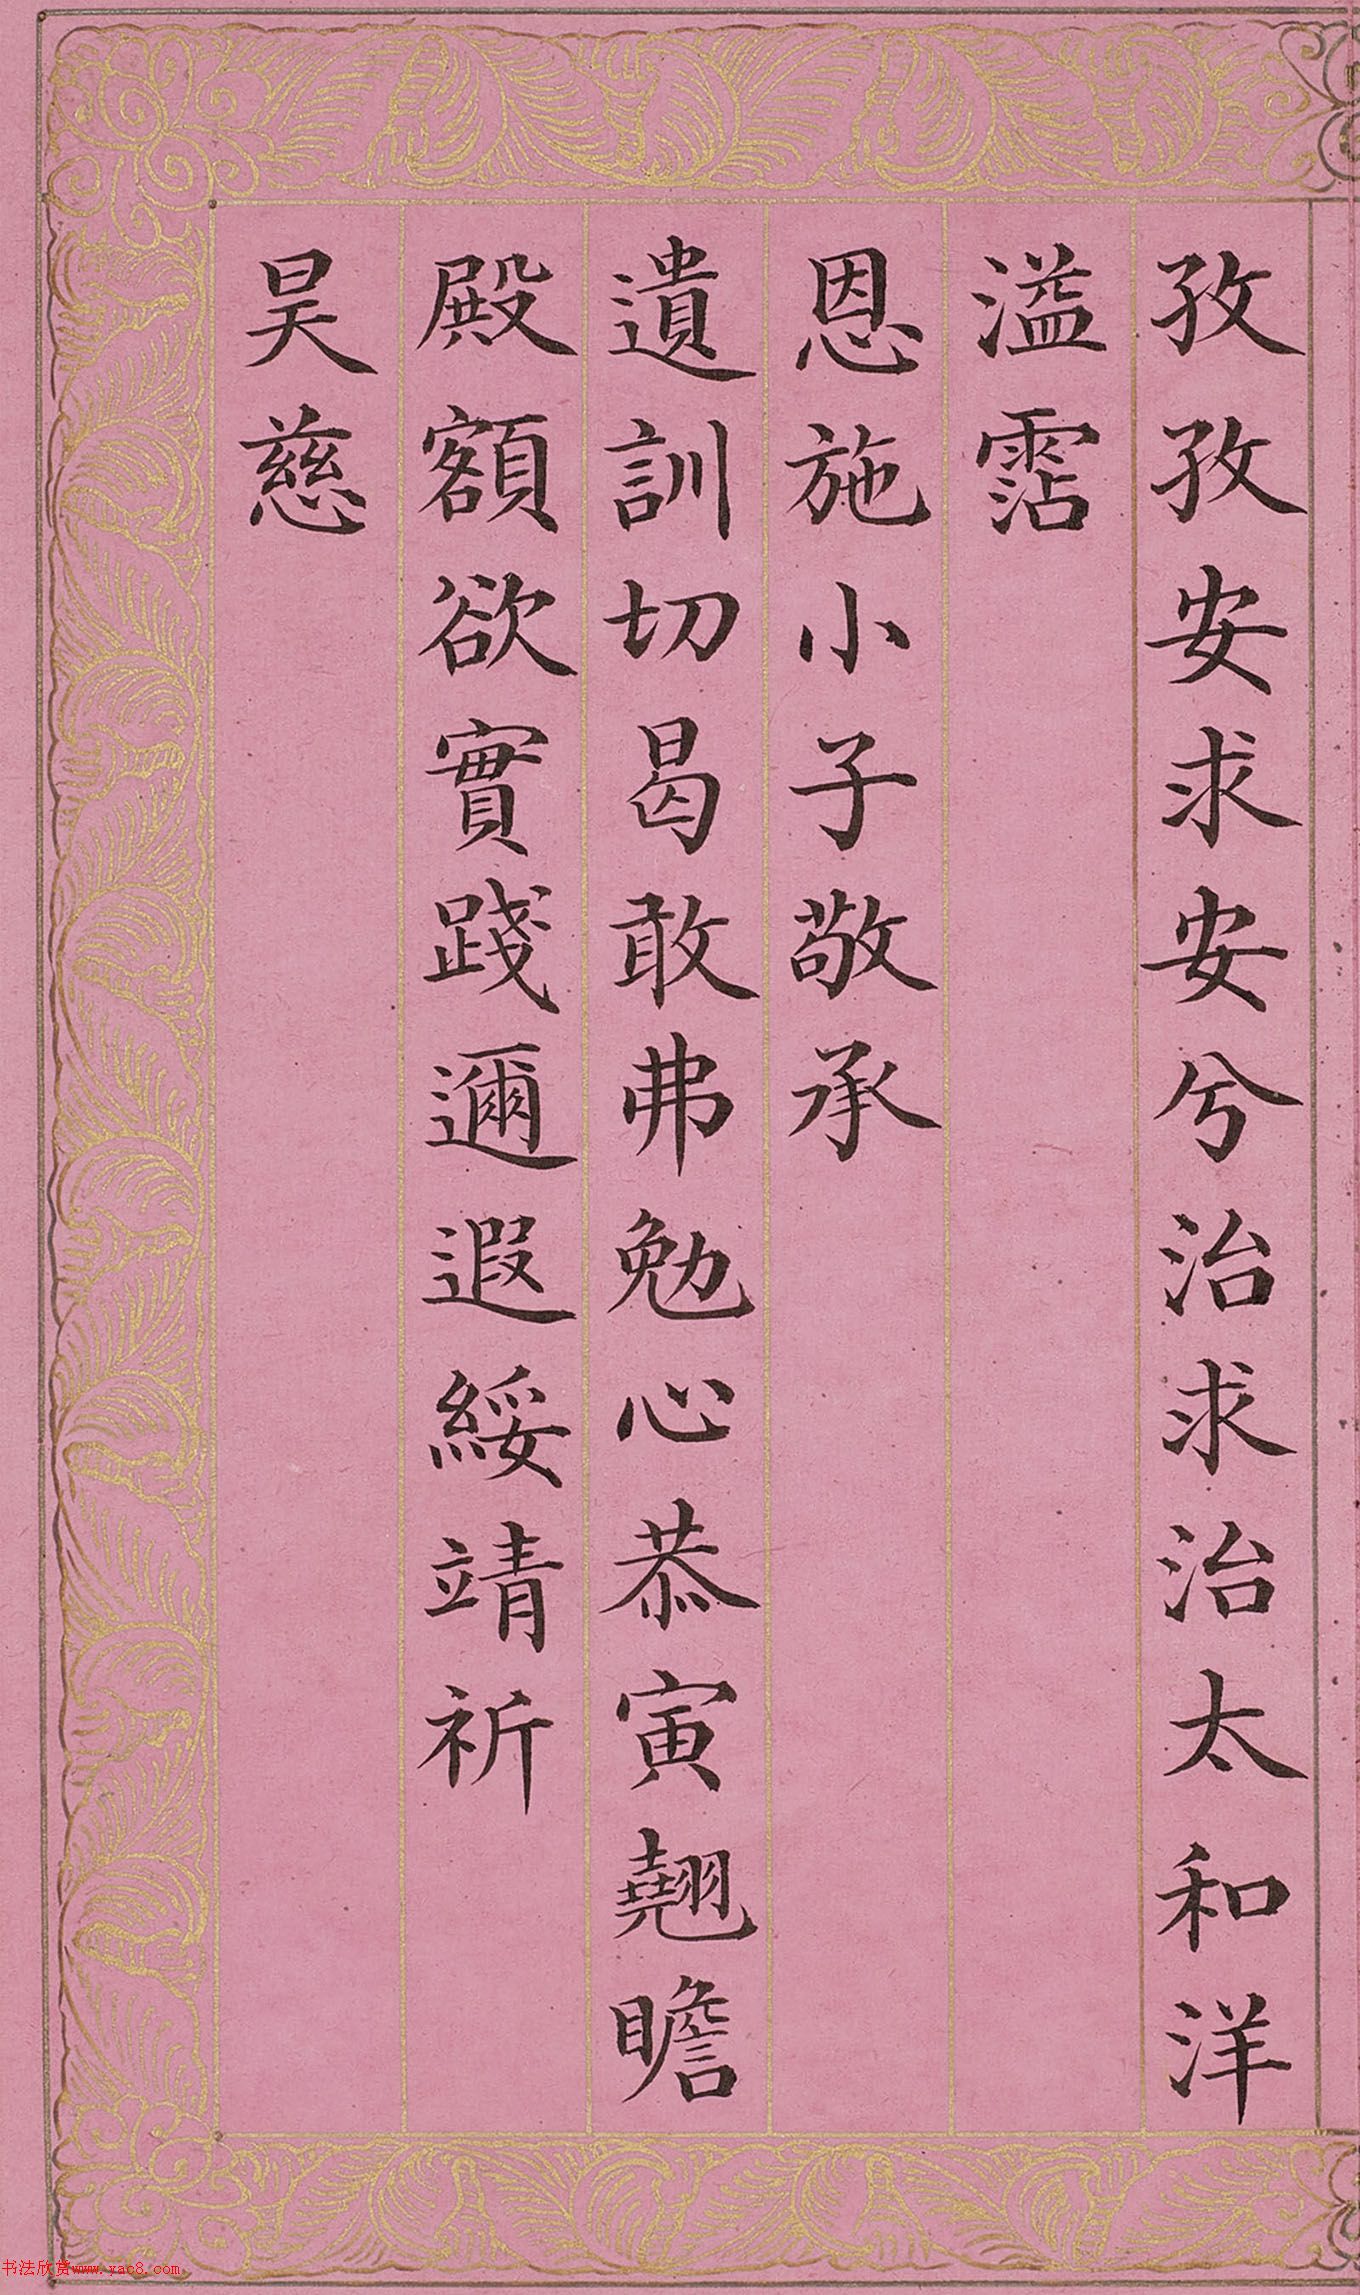 孜孜安求安兮治求治太和洋
溢霑
恩施小子敬承
遺訓切曷敢弗勉心恭寅翹瞻
殿額欲實踐邇遐綏靖祈
昊慈
书法欣赏www.yac8.com